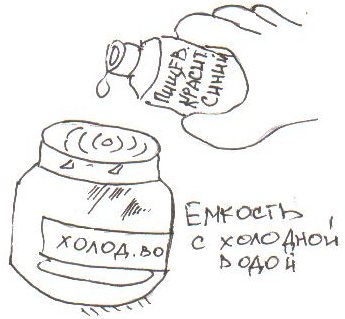 ПИЩЕВ.
КРАСИТ.
СИНИЙ
ХОЛОД.ВО
ЕМКОСТЬ
С ХОЛОДНОЙ
ВОДОЙ